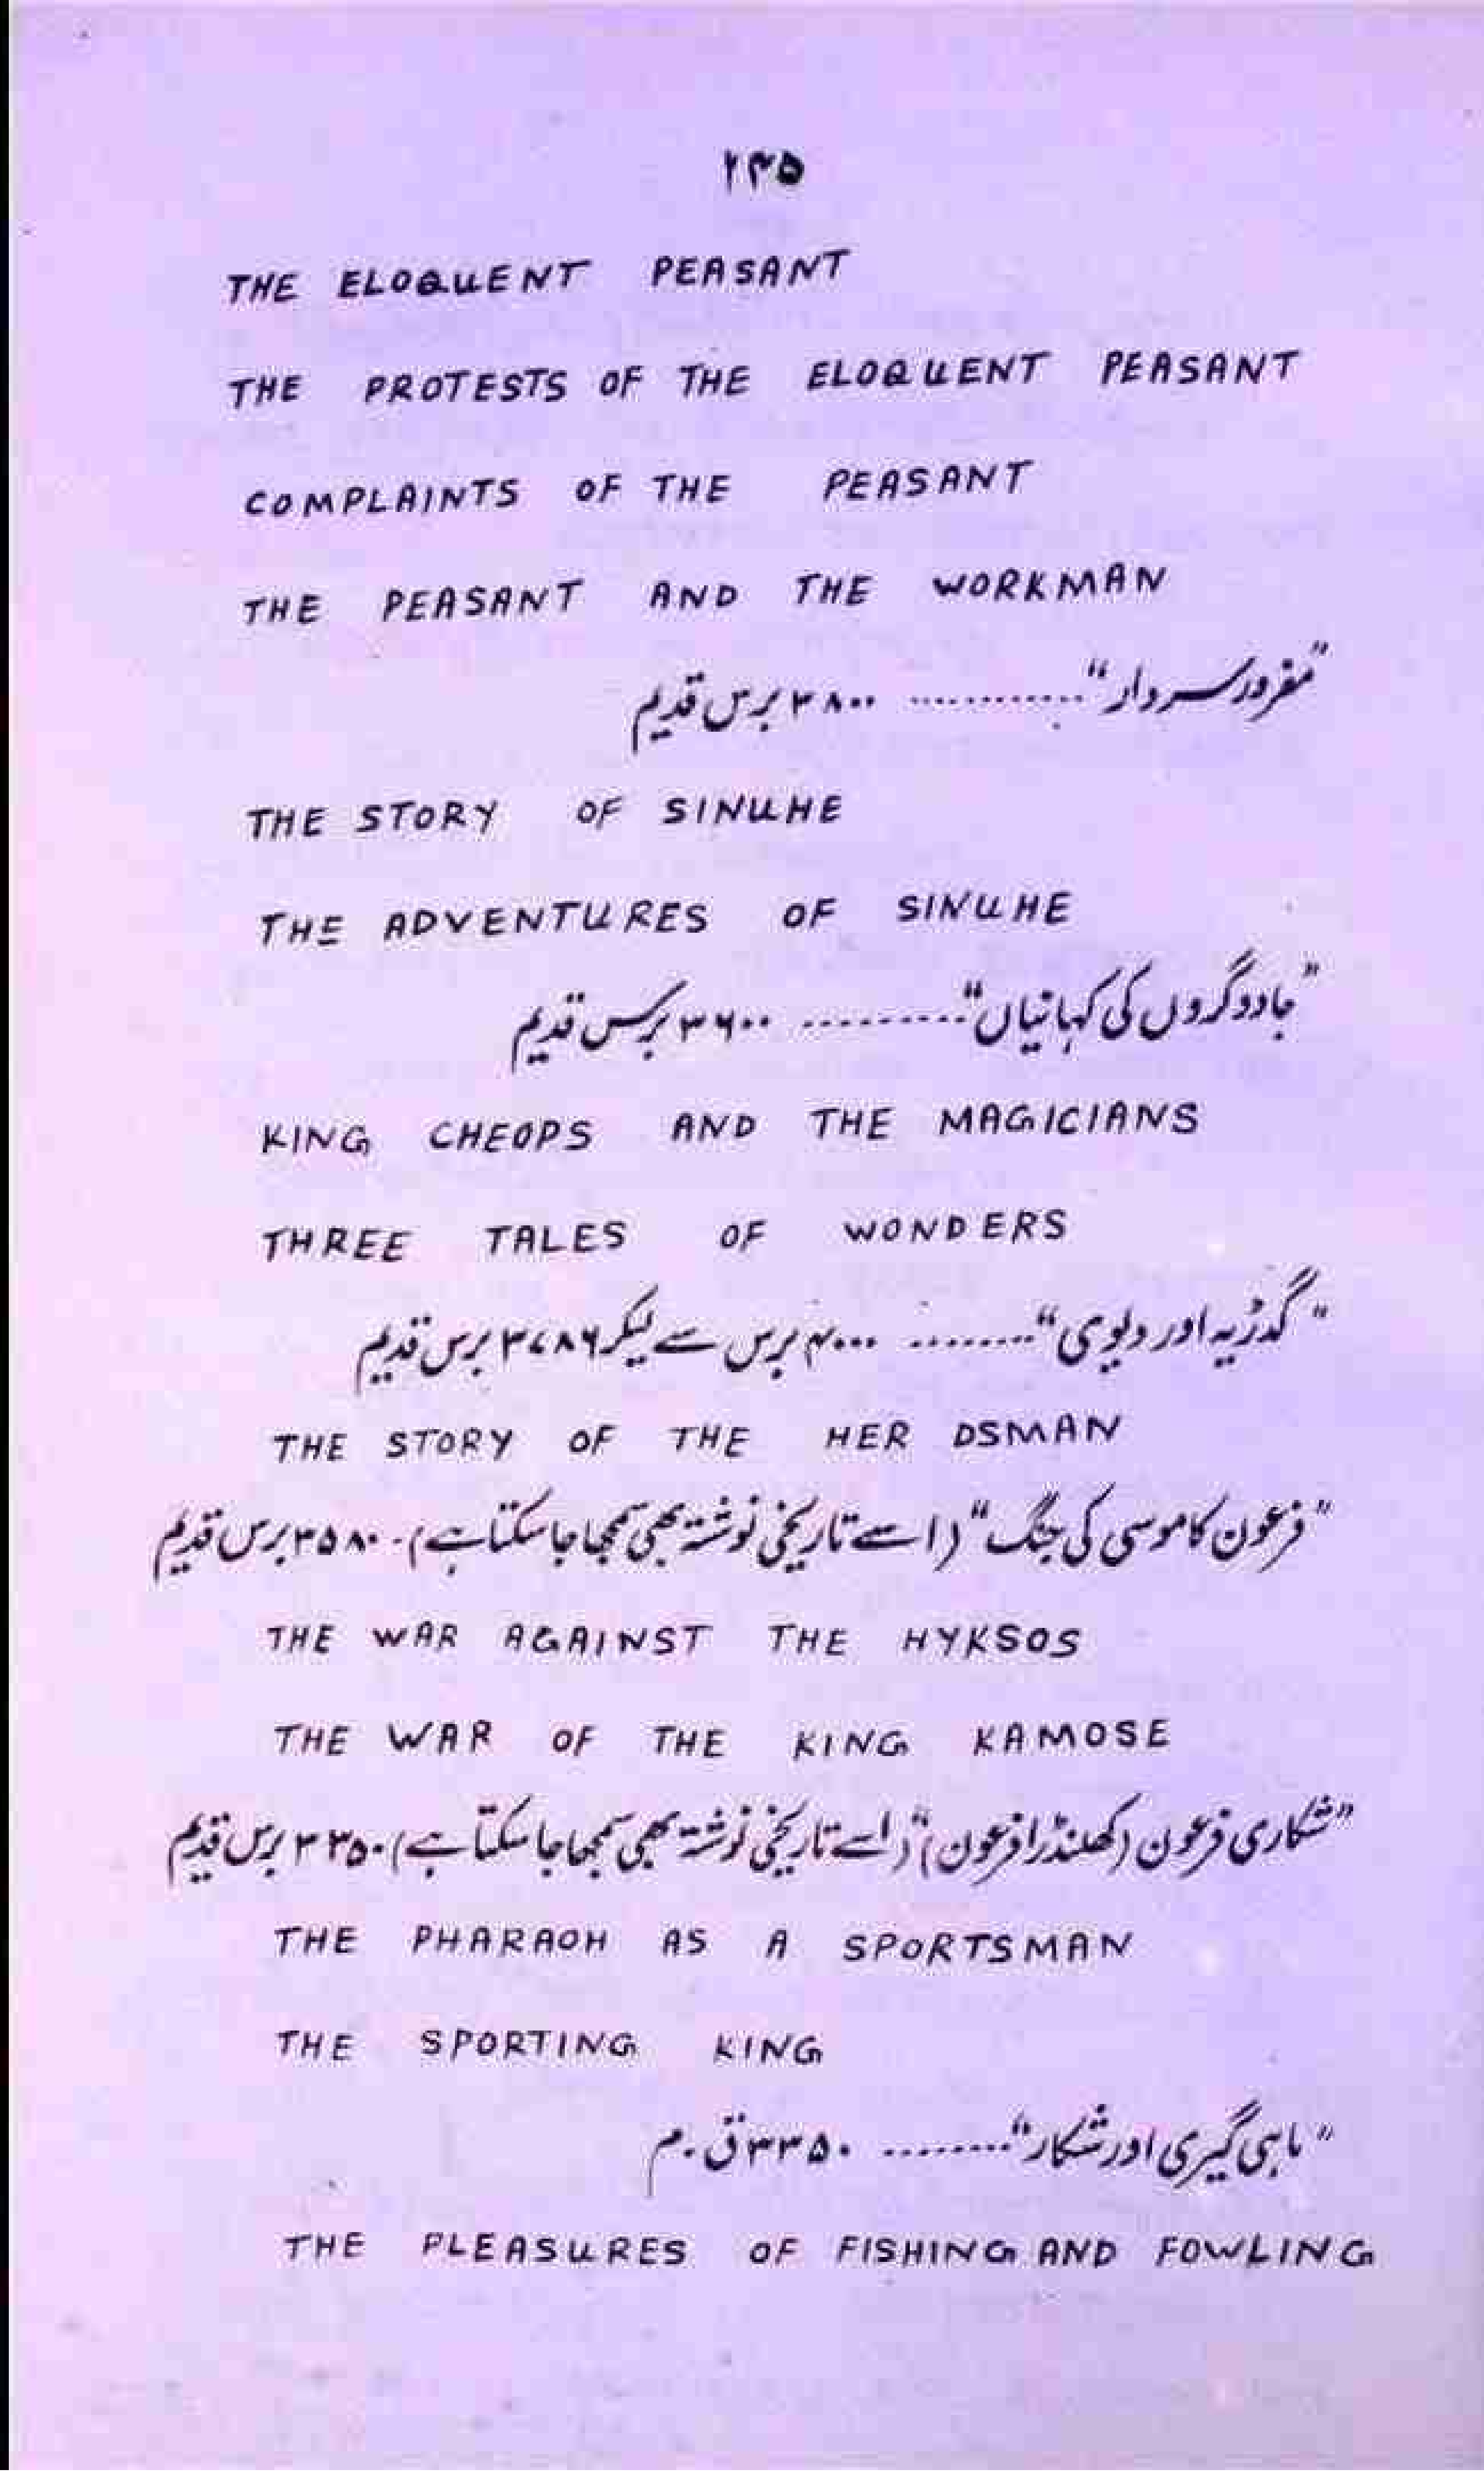 ۲۳۵
THE ELOQUENT PEASANT
THE PROTESTS OF THE ELOQUENT PEASANT
COMPLAINTS OF THE PEASANT
THE PEASANT AND THE WORKMAN
"مفرور سردار" ............ ۳۸۰۰ برس قدیم
THE STORY OF SINUHE
THE ADVENTURES OF SINUHE
"جادوگروں کی کہانیاں" .......... ۳۶۰۰ برس قدیم
KING CHEOPS AND THE MAGICIANS
THREE TALES OF WONDERS
"گدڑیہ اور دیوی" ........ ۴۰۰۰ برس سے لیکر ۳۷۸۶ برس قدیم
THE STORY OF THE HER DSMAN
"فرعون کاموسی کی جنگ" (اسے تاریخی نوشتہ بھی سمجھا جا سکتا ہے) ۔ ۳۵۸۰ برس قدیم
THE WAR AGAINST THE HYKSOS
THE WAR OF THE KING KAMOSE
"شکاری فرعون (کھلنڈرا فرعون)" (اسے تاریخی نوشتہ بھی سمجھا جا سکتا ہے) ۳۳۵۰ برس قدیم
THE PHARAOH AS A SPORTSMAN
THE SPORTING KING
"ماہی گیری اور شکار" ........ ۳۳۵۰ ق۔م
THE PLEASURES OF FISHING AND FOWLING